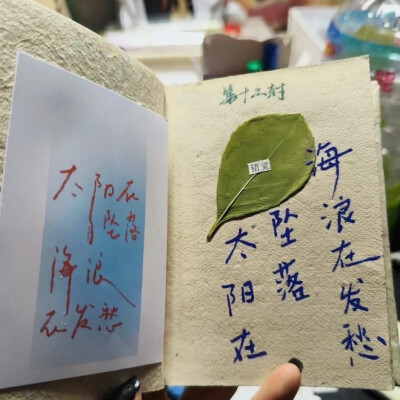 太阳在
坠落
海浪
在发愁
第十二封
太阳在
坠落
海浪在发愁